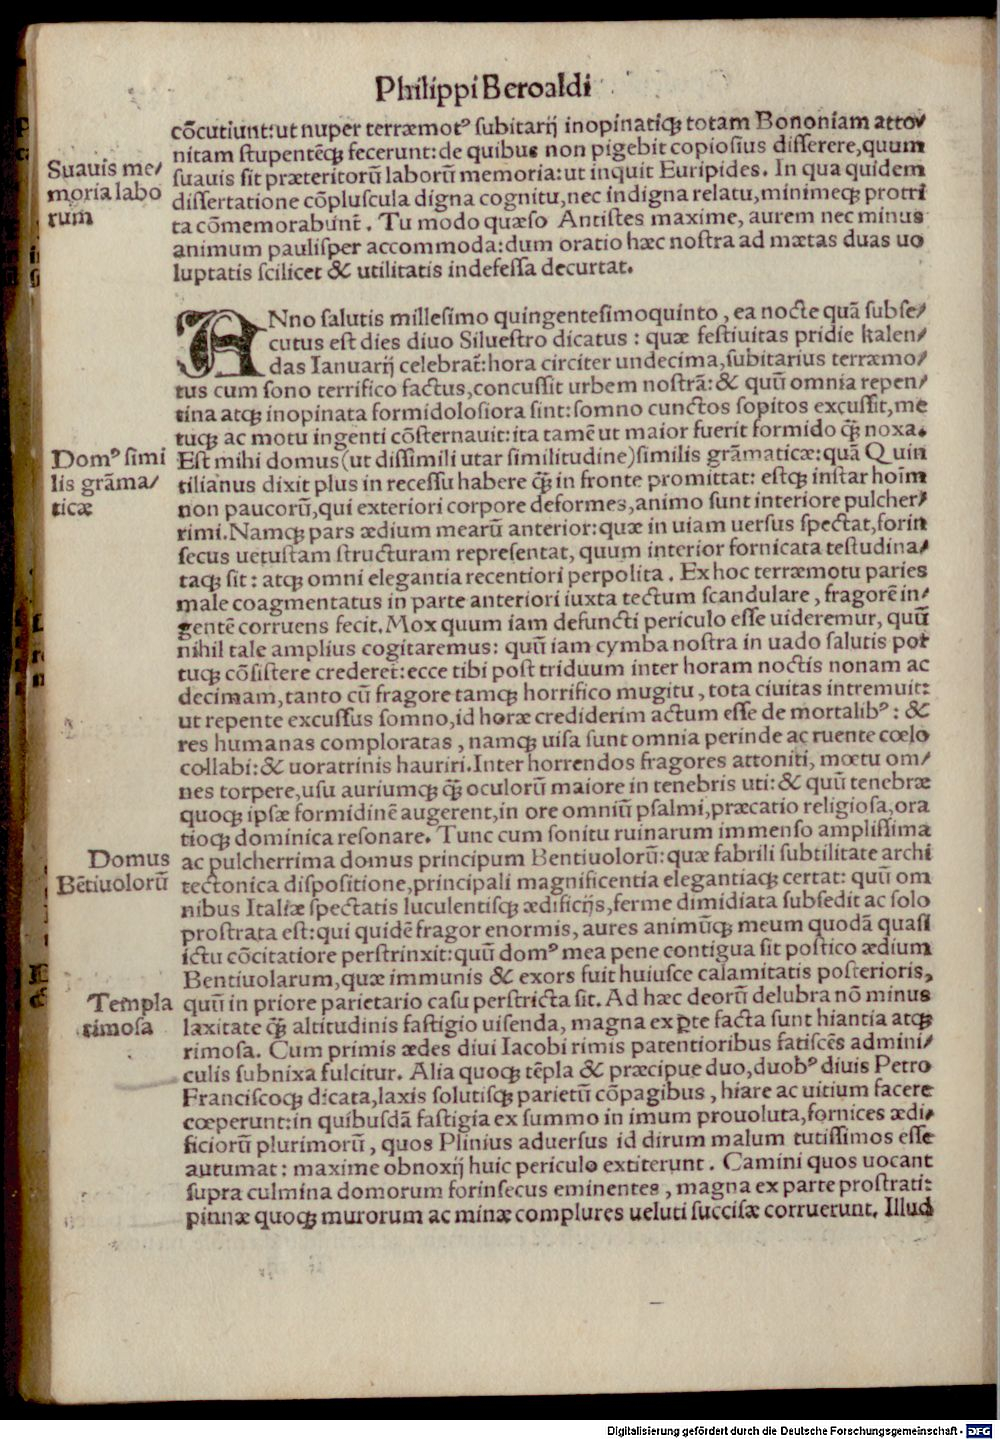 Philippi Beroaldi
cōcutiunt:ut nuper terræmotꝰ subitarij inopinatiqꝫ totam Bononiam atto/
nitam stupentēqꝫ fecerunt:de quibus non pigebit copiosius disserere,quum
suauis sit præteritorū laborū memoria:ut inquit Euripides. In qua quidem
dissertatione cōpluscula digna cognitu,nec indigna relatu,minimeqꝫ protri
ta cōmemorabunt̄. Tu modo quæso Antistes maxime, aurem nec minus
animum paulisper accommoda:dum oratio hæc nostra ad mætas duas uo
luptatis scilicet & utilitatis indefessa decurtat.
Suauis me/
moria labo
rum
ANno salutis millesimo quingentesimoquinto, ea nocte quā subse/
cutus est dies diuo Siluestro dicatus : quæ festiuitas pridie kalen/
das Ianuarij celebrat̄:hora circiter undecima,subitarius terræmo/
tus cum sono terrifico factus,concussit urbem nostrā:& quū omnia repen/
tina atqꝫ inopinata formidolosiora sint:somno cunctos sopitos excussit,me
tuqꝫ ac motu ingenti cōsternauit:ita tamē ut maior fuerit formido q̄ꝫ noxa.
Est mihi domus(ut dissimili utar similitudine)similis grāmaticæ:quā Quin
tilianus dixit plus in recessu habere q̄ꝫ in fronte promittat: estqꝫ instar hoīm
non paucorū,qui exteriori corpore deformes,animo sunt interiore pulcher/
rimi.Namqꝫ pars ædium mearū anterior:quæ in uiam uersus spectat,forin
secus uetustam structuram representat, quum interior fornicata testudina/
taqꝫ sit: atqꝫ omni elegantia recentiori perpolita. Ex hoc terræmotu paries
male coagmentatus in parte anteriori iuxta tectum scandulare, fragorē in/
gentē corruens fecit.Mox quum iam defuncti periculo esse uideremur, quū
nihil tale amplius cogitaremus: quū iam cymba nostra in uado salutis por
tuqꝫ cōsistere crederet:ecce tibi post triduum inter horam noctis nonam ac
decimam,tanto cū fragore tamqꝫ horrifico mugitu, tota ciuitas intremuit:
ut repente excussus somno,id horæ crediderim actum esse de mortalibꝰ: &
res humanas comploratas, namqꝫ uisa sunt omnia perinde ac ruente cœlo
collabi:& uoratrinis hauriri.Inter horrendos fragores attoniti, mœtu om/
nes torpere,usu auriumqꝫ q̄ꝫ oculorū maiore in tenebris uti:& quū tenebræ
quoqꝫ ipsæ formidinē augerent,in ore omniū psalmi,præcatio religiosa,ora
tioqꝫ dominica resonare. Tunc cum sonitu ruinarum immenso amplissima
ac pulcherrima domus principum Bentiuolorū:quæ fabrili subtilitate archi
tectonica dispositione,principali magnificentia elegantiaqꝫ certat: quū om
nibus Italiæ spectatis luculentisqꝫ ædificijs,ferme dimidiata subsedit ac solo
prostrata est:qui quidē fragor enormis, aures animūqꝫ meum quodā quasi
ictu cōcitatiore perstrinxit:quū domꝰ mea pene contigua sit postico ædium
Bentiuolarum,quæ immunis & exors fuit huiusce calamitatis posterioris,
quū in priore parietario casu perstricta sit. Ad hæc deorū delubra nō minus
laxitate q̄ꝫ altitudinis fastigio uisenda, magna ex ꝑte facta sunt hiantia atqꝫ
rimosa. Cum primis ædes diui Iacobi rimis patentioribus fatiscēs admini/
culis subnixa fulcitur. Alia quoqꝫ tēpla & præcipue duo,duobꝰ diuis Petro
Franciscoqꝫ dicata,laxis solutisqꝫ parietū cōpagibus, hiare ac uitium facere
cœperunt:in quibusdā fastigia ex summo in imum prouoluta,fornices ædi/
ficiorū plurimorū, quos Plinius aduersus id dirum malum tutissimos esse
autumat: maxime obnoxij huic periculo extiterunt. Camini quos uocant
supra culmina domorum forinsecus eminentes, magna ex parte prostrati:
pinnæ quoqꝫ murorum ac minæ complures ueluti succisæ corruerunt. Illud
Domꝰ simi
lis grāma/
ticæ
Domus
Bētiuolorū
Templa
rimosa
Digitalisierung gefördert durch die Deutsche Forschungsgemeinschaft - DFG